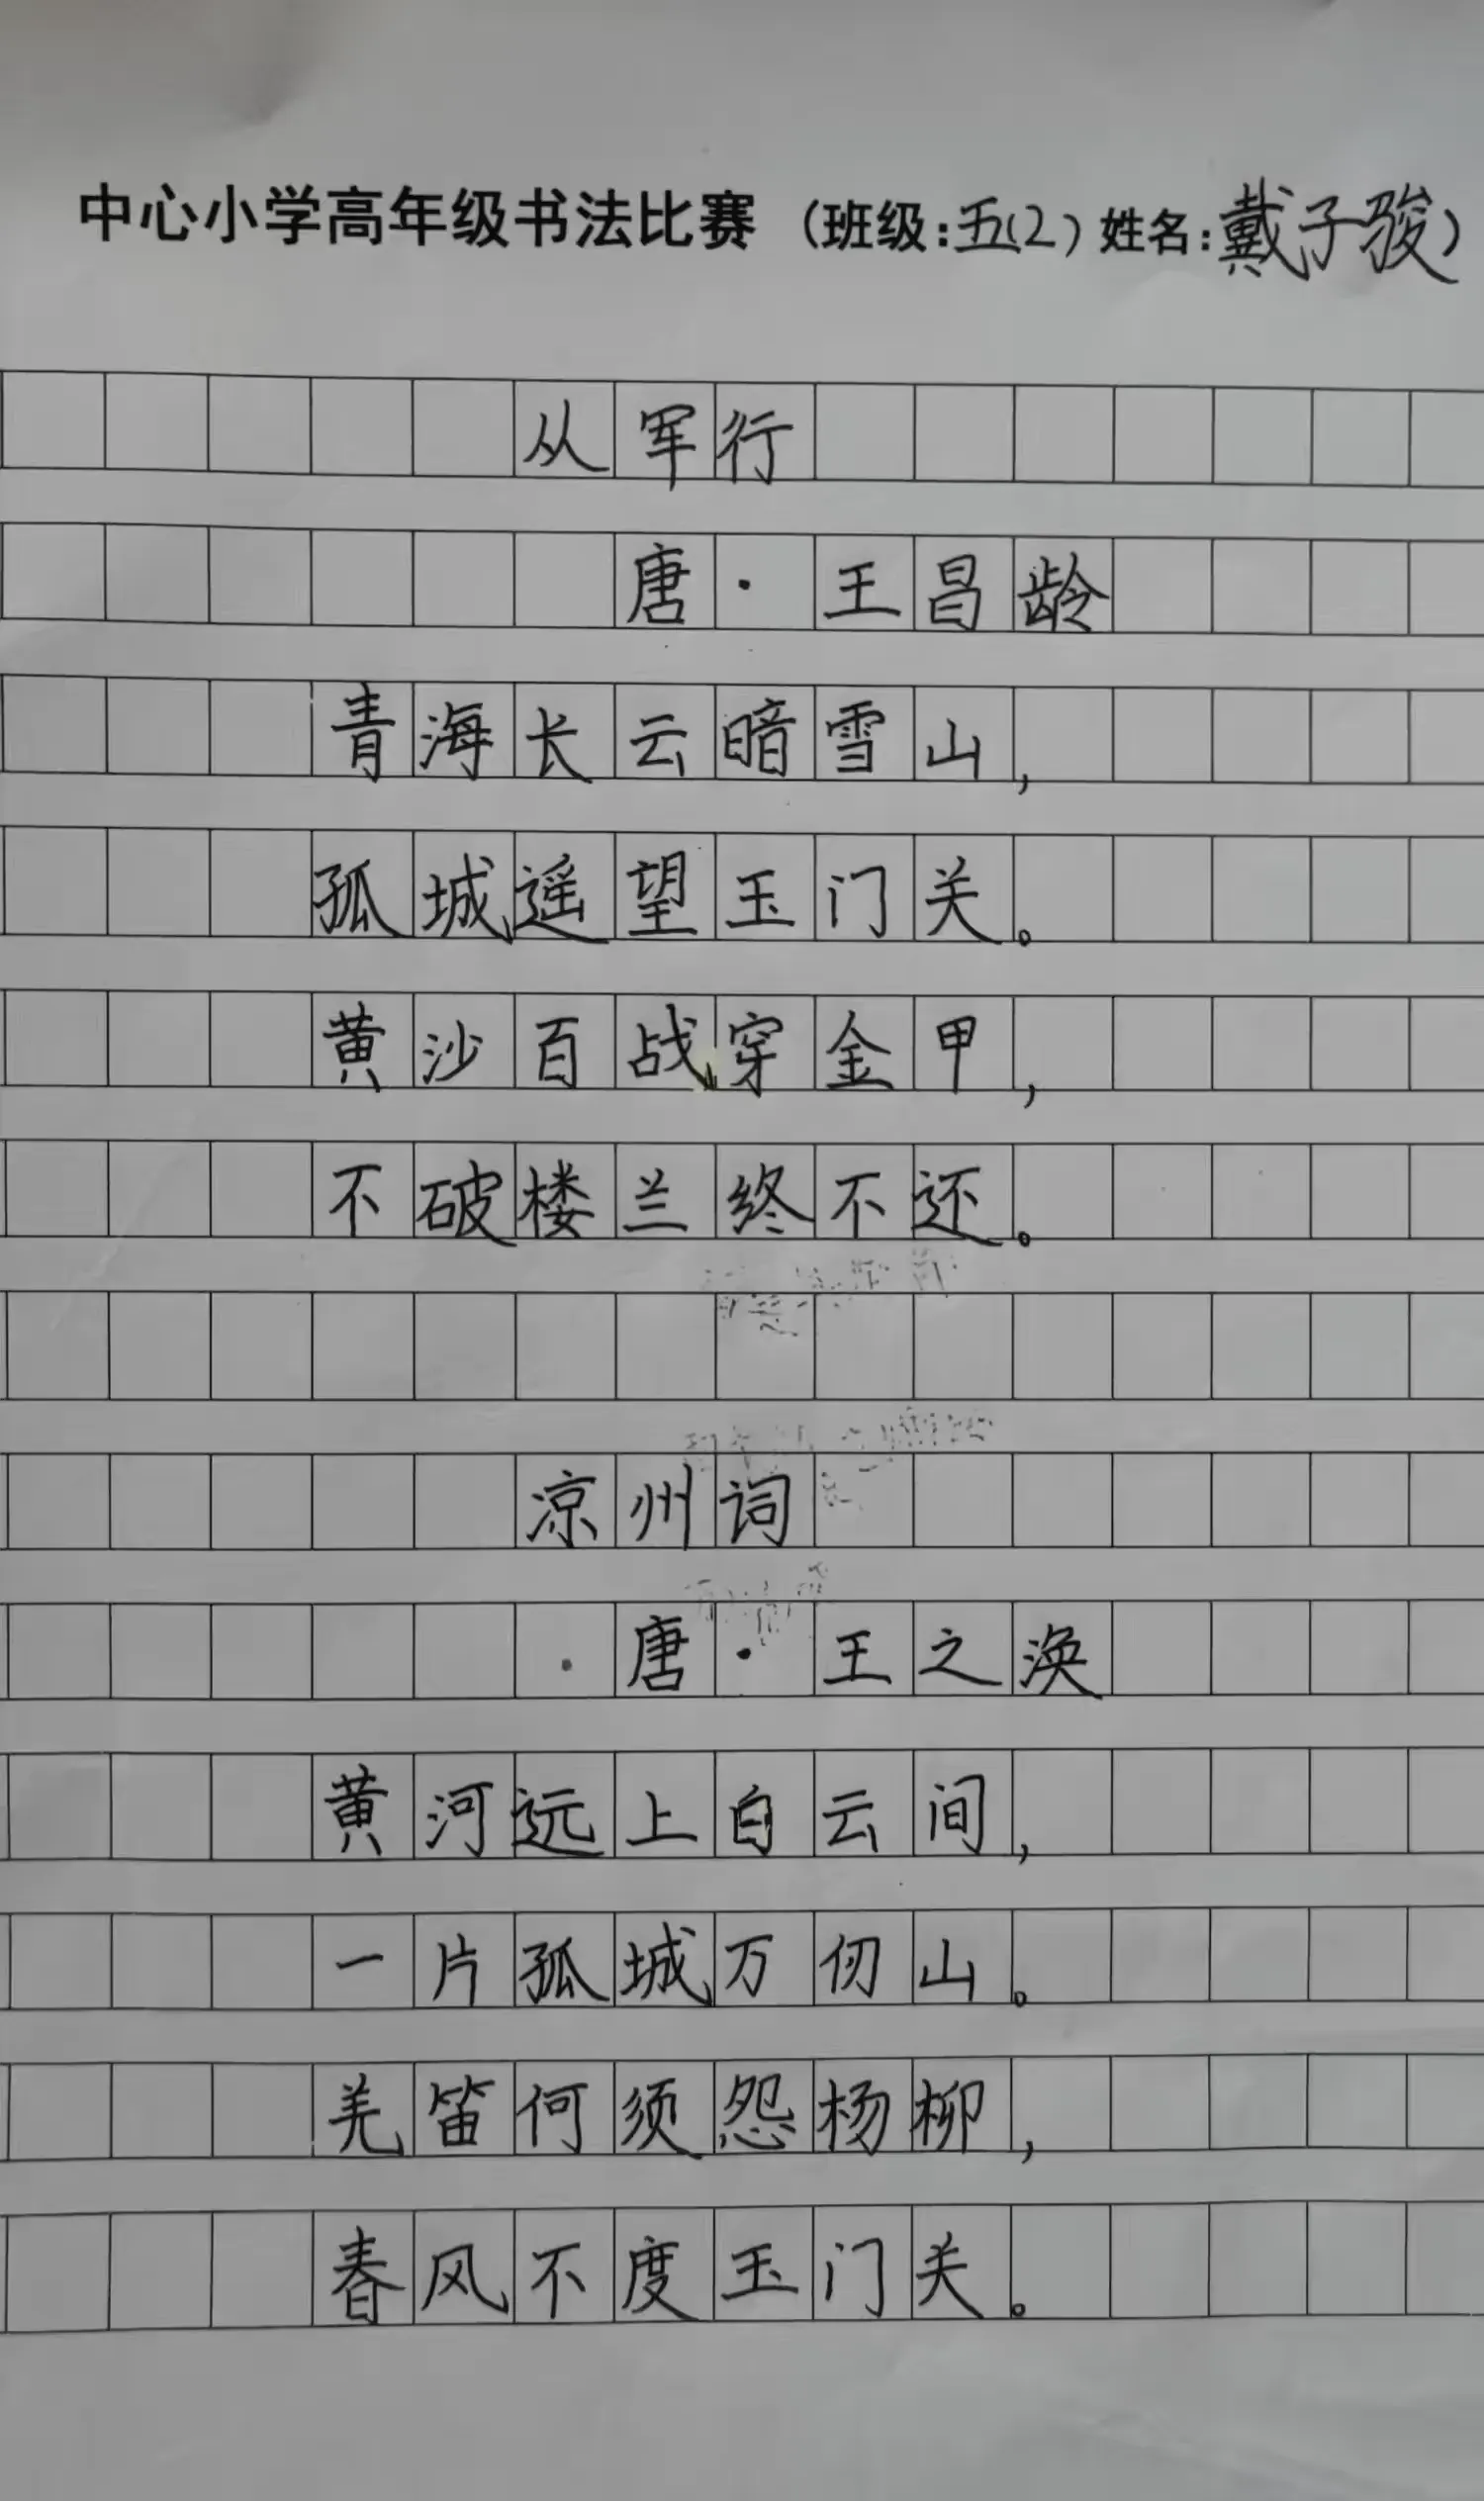 中心小学高年级书法比赛（班级:五(2) 姓名:戴子骏）
从军行
唐·王昌龄
青海长云暗雪山，
孤城遥望玉门关。
黄沙百战穿金甲，
不破楼兰终不还。
凉州词
唐·王之涣
黄河远上白云间，
一片孤城万仞山。
羌笛何须怨杨柳，
春风不度玉门关。